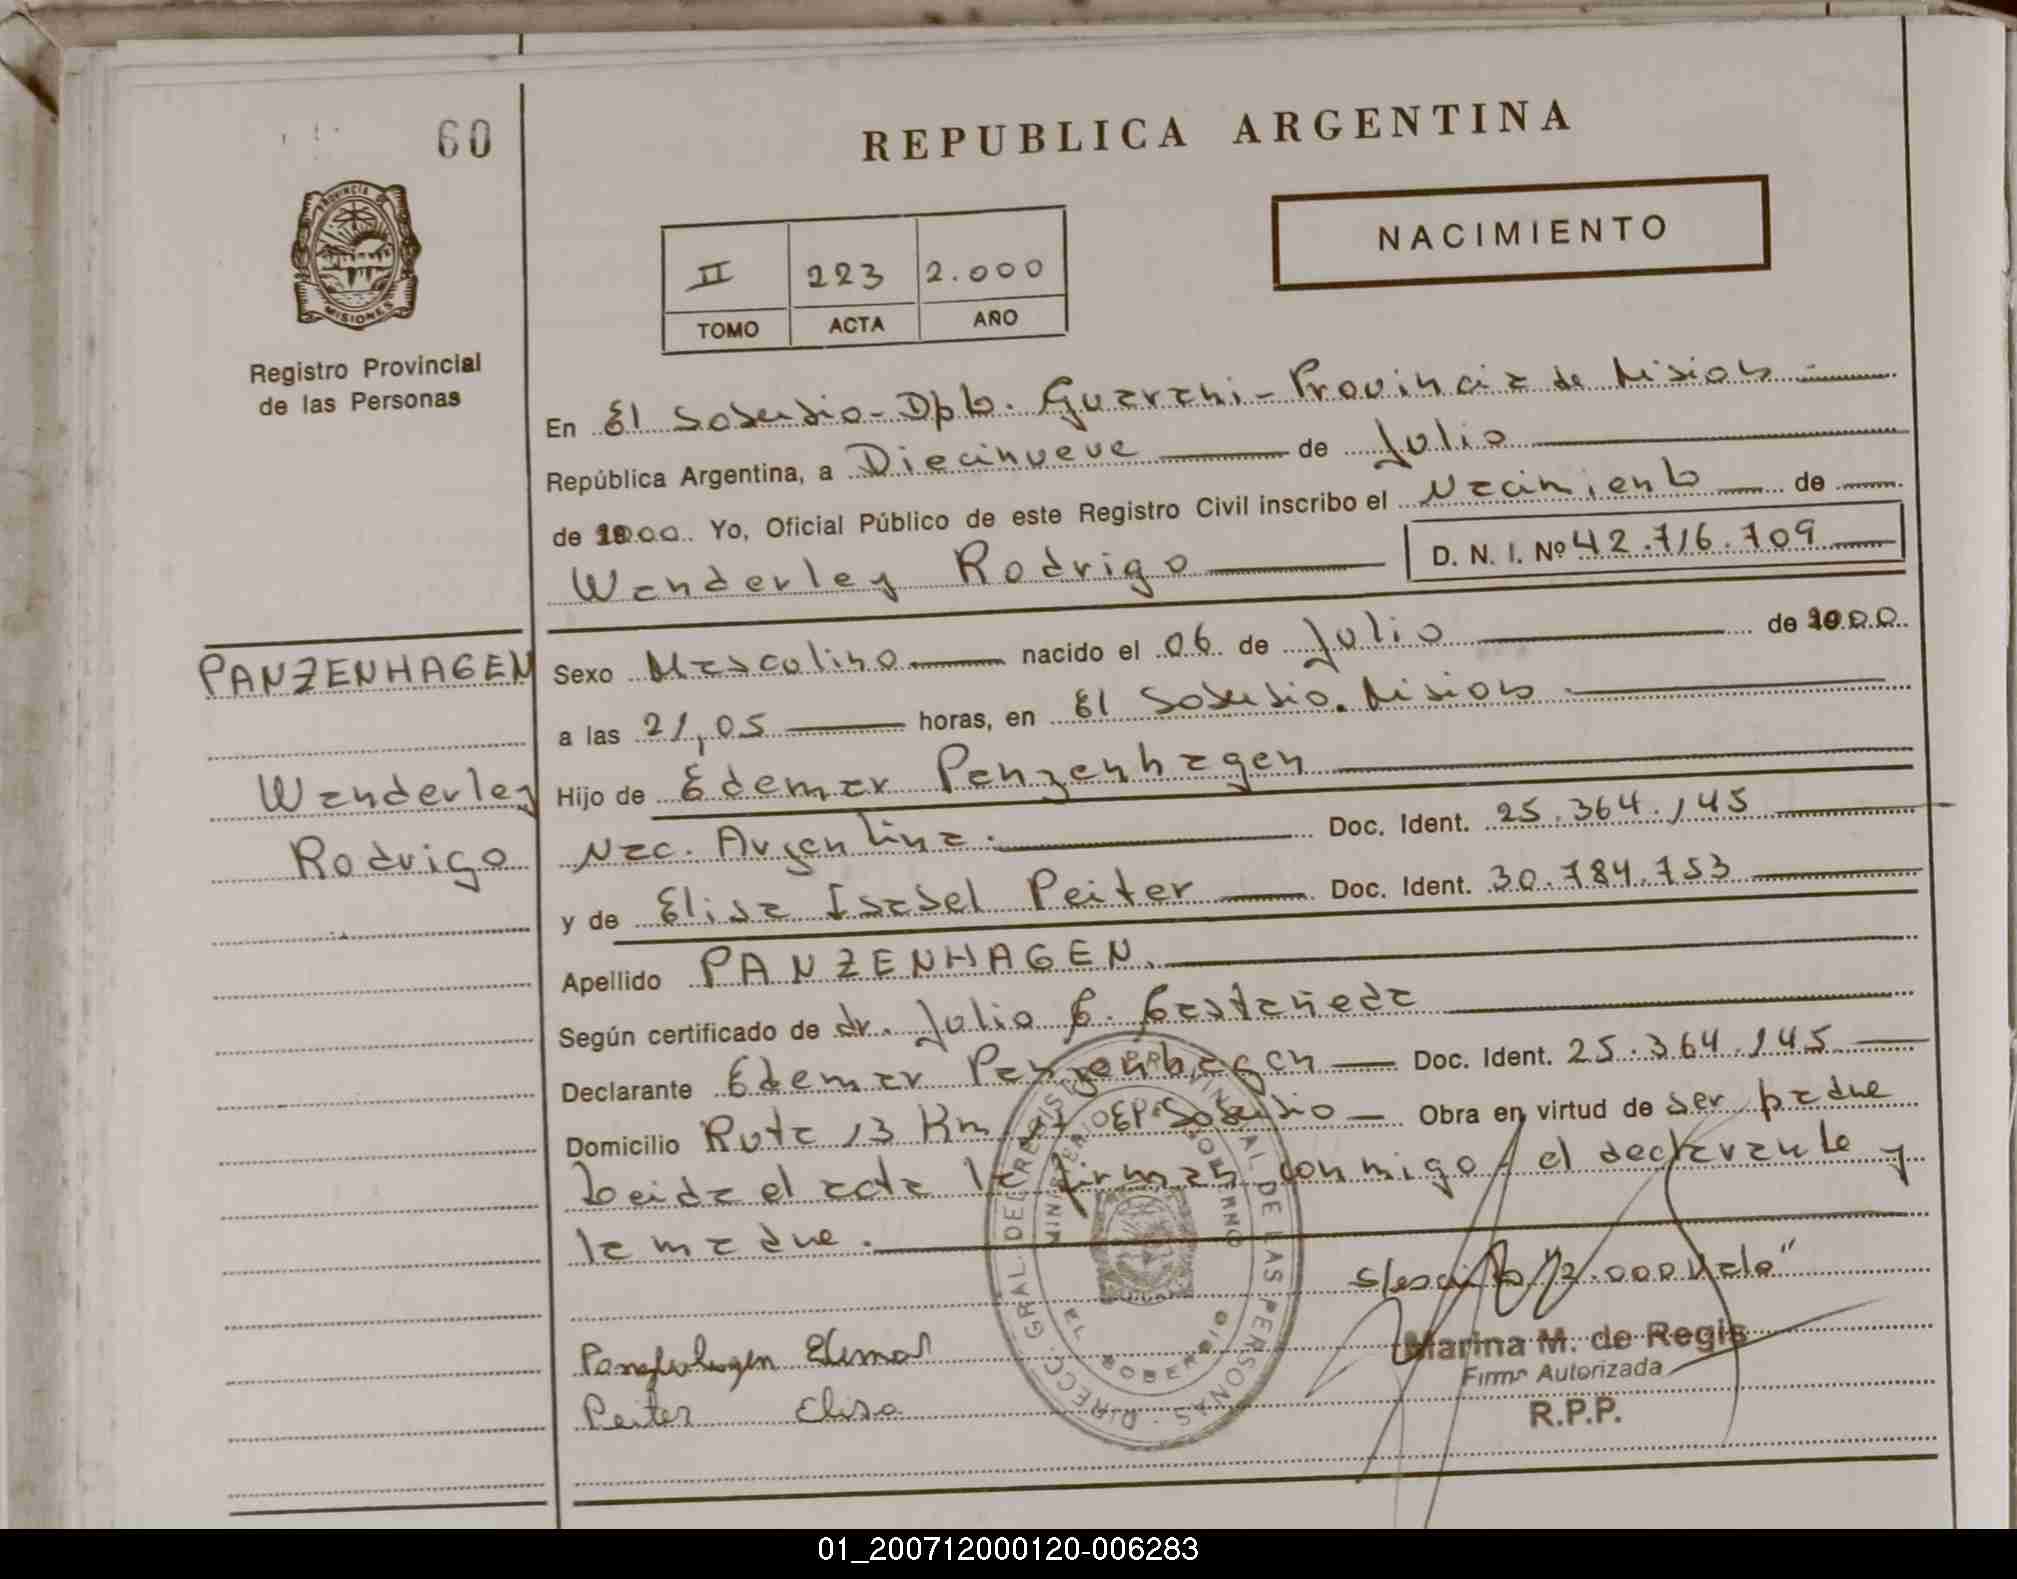 60
REPUBLICA ARGENTINA
PROVINCIA
MISIONES
Registro Provincial
de las Personas
II 223 2.000
TOMO ACTA AÑO
NACIMIENTO
En El Soberbio - Dpto. Guarani - Provincia de Misiones
República Argentina, a Diecinueve de Julio
de 2000. Yo, Oficial Público de este Registro Civil inscribo el Nacimiento de
Wanderley Rodrigo D. N. I. Nº 42.716.709
PANZENHAGEN
Wanderley
Rodrigo
Sexo Masculino nacido el 06 de Julio de 2000
a las 21,05 horas, en El Soberbio. Misiones
Hijo de Edemar Panzenhagen
Nac. Argentina. Doc. Ident. 25.364.145
y de Elisa Isabel Peiter Doc. Ident. 30.784.753
Apellido PANZENHAGEN.
Según certificado de dr. Julio C. Castañeda
Declarante Edemar Panzenhagen Doc. Ident. 25.364.145
Domicilio Ruta 13 Km 17 El Soberbio Obra en virtud de ser padre
Leida el acta la firman conmigo el declarante y
la madre.
s/escrito "2.000 Vale"
DIRECC. GRAL. DEL REGISTRO PROVINCIAL DE LAS PERSONAS
MINISTERIO DE GOBIERNO
EL SOBERBIO
Panzenhagen Edemar
Peiter Elisa
Marina M. de Regis
Firma Autorizada
R.P.P.
01_200712000120-006283